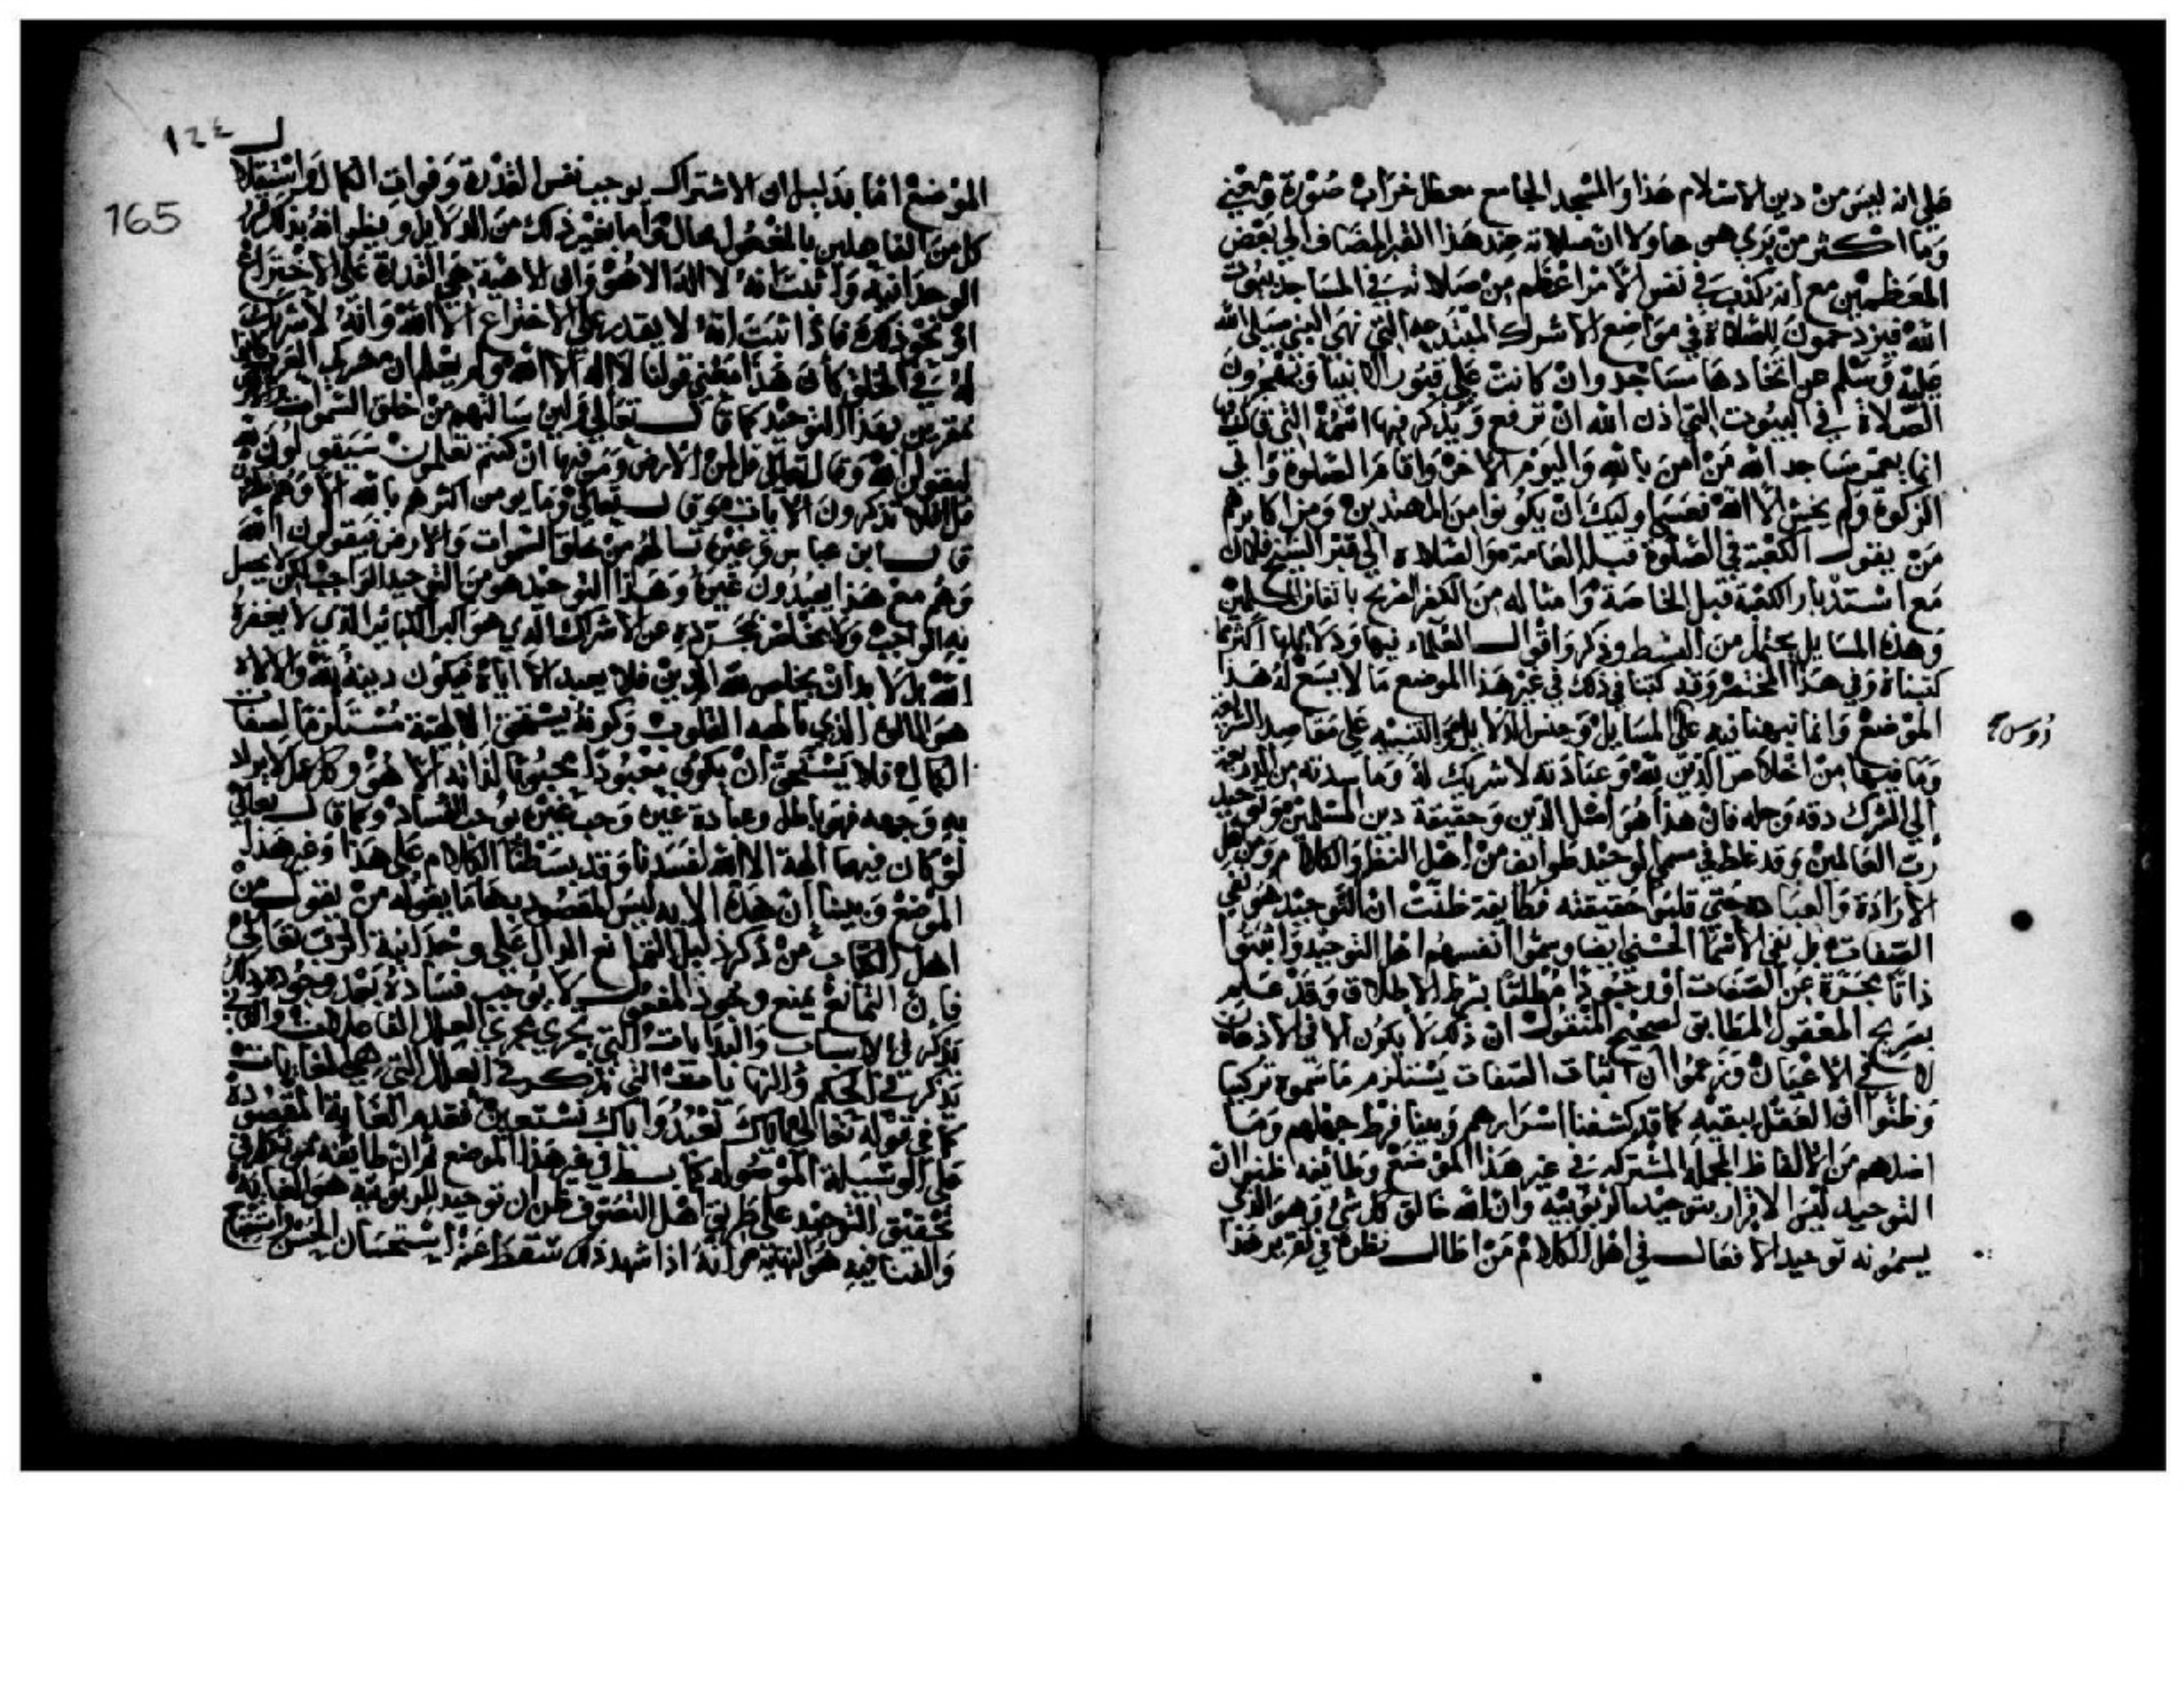 على انه ليس من دين الاسلام هذا والمسجد الجامع معطل خراب صورة ومعنى
وما اكثر من يرى هو ها ولا ان صلاته عند هذا القبر المضاف الى بعض
المعظمين مع انه كذب في نفس الامر اعظم من صلاته في المساجد بيوت
الله فيزدحمون للصلاة في مواضع الاشراك المبتدعه التي نهى النبي صلى الله
عليه وسلم عن اتخاذها مساجد وان كانت على قبور الانبيا ويهجرون
الصلاة في البيوت التي اذن الله ان ترفع ويذكر فيها اسمه التي قال فيها
انما يعمر مساجد الله من امن بالله واليوم الاخر واقام الصلوة واتى
الزكوة ولم يخش الا الله فعسى اوليك ان يكونوا من المهتدين ومن اكابرهم
من يقول الكعبة في الصلوة قبلة العامة والصلاه الى قبر الشيخ فلان
مع استدبار الكعبة قبلة الخاصة وامثاله من الكفر الصريح باتفاق المسلمين
وهذه المسايل تحتمل من البسط وذكر اقوال العلماء فيها ودلايلها اكثر مما
كتبناه في هذا المختصر وقد كتبنا في ذلك في غير هذا الموضع ما لا يسع له هذا
الموضع وانما نبهنا فيه على المسايل وجنس الدلايل والتنبيه على مقاصد الشريعة
وما فيها من اخلاص الدين لله وعبادته لا شريك له وما سدته من الذريعة
الى الشرك دقه وجله فان هذا هو اصل الدين وحقيقة دين المسلمين وتوحيد
رب العالمين وقد غلط في مسمى التوحيد طوايف من اهل النظر والكلام ومن اهل
الارادة والعباده حتى قلبوا حقيقته فطايفة ظنت ان التوحيد هو نفي
الصفات بل نفي الاسما الحسنى ايضا وسموا انفسهم اهل التوحيد واثبتوا
ذاتا مجردة عن الصفات او وجودا مطلقا بشرط الاطلاق وقد علم
بصريح المعقول المطابق لصحيح المنقول ان ذلك لا يكون الا في الاذهان
لا في الاعيان وزعموا ان اثبات الصفات يستلزم ما سموه تركيبا
وظنوا ان العقل ينفيه كما قد كشفنا اسرارهم وبينا فرط جهلهم وما
اضلهم من الالفاظ المجملة المشتركه في غير هذا الموضع وطايفه ظنوا ان
التوحيد ليس الا الاقرار بتوحيد الربوبيه وان الله خالق كل شي وهو الذي
يسمونه توحيد الافعال في اهل الكلام من اطال نظره في تقرير هذا
١٢٤
165
الموضع اما بدليل ان الاشتراك يوجب نقص القدرة وفوات الكمال واستقلال
كل من الفاعلين بالمفعول محال واما بغير ذلك من الدلايل ويظن انه بذلك قرر
الوحدانية واثبت انه لا اله الا هو وان الالهية هي القدرة على الاختراع
او نحو ذلك فاذا اثبت انه لا يقدر على الاختراع الا الله وانه لا شريك
له في الخلق كان هذا معنى قولنا لا اله الا الله ولم يعلم ان مشركي العرب كانوا
مقرين بهذا التوحيد كما قال تعالى ولين سالتهم من خلق السموات والارض
ليقولن الله وقال تعالى قل لمن الارض ومن فيها ان كنتم تعلمون سيقولون لله
قل افلا تذكرون الايات وقال تعالى وما يومن اكثرهم بالله الا وهم مشركون
قال ابن عباس وغيره تسالهم من خلق السموات والارض فيقولون الله
وهم مع هذا يعبدون غيره وهذا التوحيد هو من التوحيد الواجب لكن لا يحصل
به الواجب ولا يخلص بمجرده عن الاشراك الذي هو اكبر الكباير الذي لا يغفره
الله بل لا بد ان يخلص لله الدين فلا يعبد الا اياه فيكون دينه لله والاله
هو المالوه الذي تالهه القلوب وكونه يستحق الالهية مستلزم لصفات
الكمال فلا يستحق ان يكون معبودا محبوبا لذاته الا هو وكل عمل لا يراد
به وجهه فهو باطل وعبادة غيره وحب غيره يوجب الفساد كما قال تعالى
لو كان فيهما الهة الا الله لفسدتا وقد بسطنا الكلام على هذا وغير هذا
الموضع وبينا ان هذه الايه ليس المقصود بها ما يقوله من يقوله من
اهل الكلام من ذكر دليل التمانع الدال على وحدانية الرب تعالى
فان التمانع يمنع وجود المفعول لا يوجب فساده بعد وجوده
تذكر في الاسباب والبدايات التي تجري مجرى العلل الفاعلات والثاني
تذكر في الحكم والنهايات التي تذكر في العلل التي هي الغايات
كما في قوله تعالى اياك نعبد واياك نستعين فقدم الغاية المقصودة
على الوسيلة الموصوله كما بسط في غير هذا الموضع ثم ان طايفة
تحقيق التوحيد على طريق اهل التصوف ظن ان توحيد الربوبيه هو الغاية
والفنا فيه هو النهاية وانه اذا شهد ذلك سقط عنه استحسان الحسن واستقباح